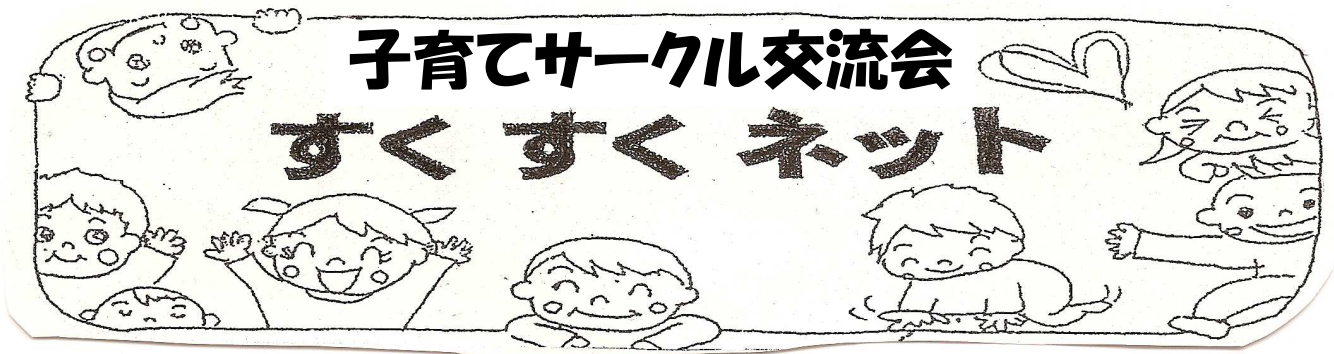 子育てサークル交流会
すくすくネット